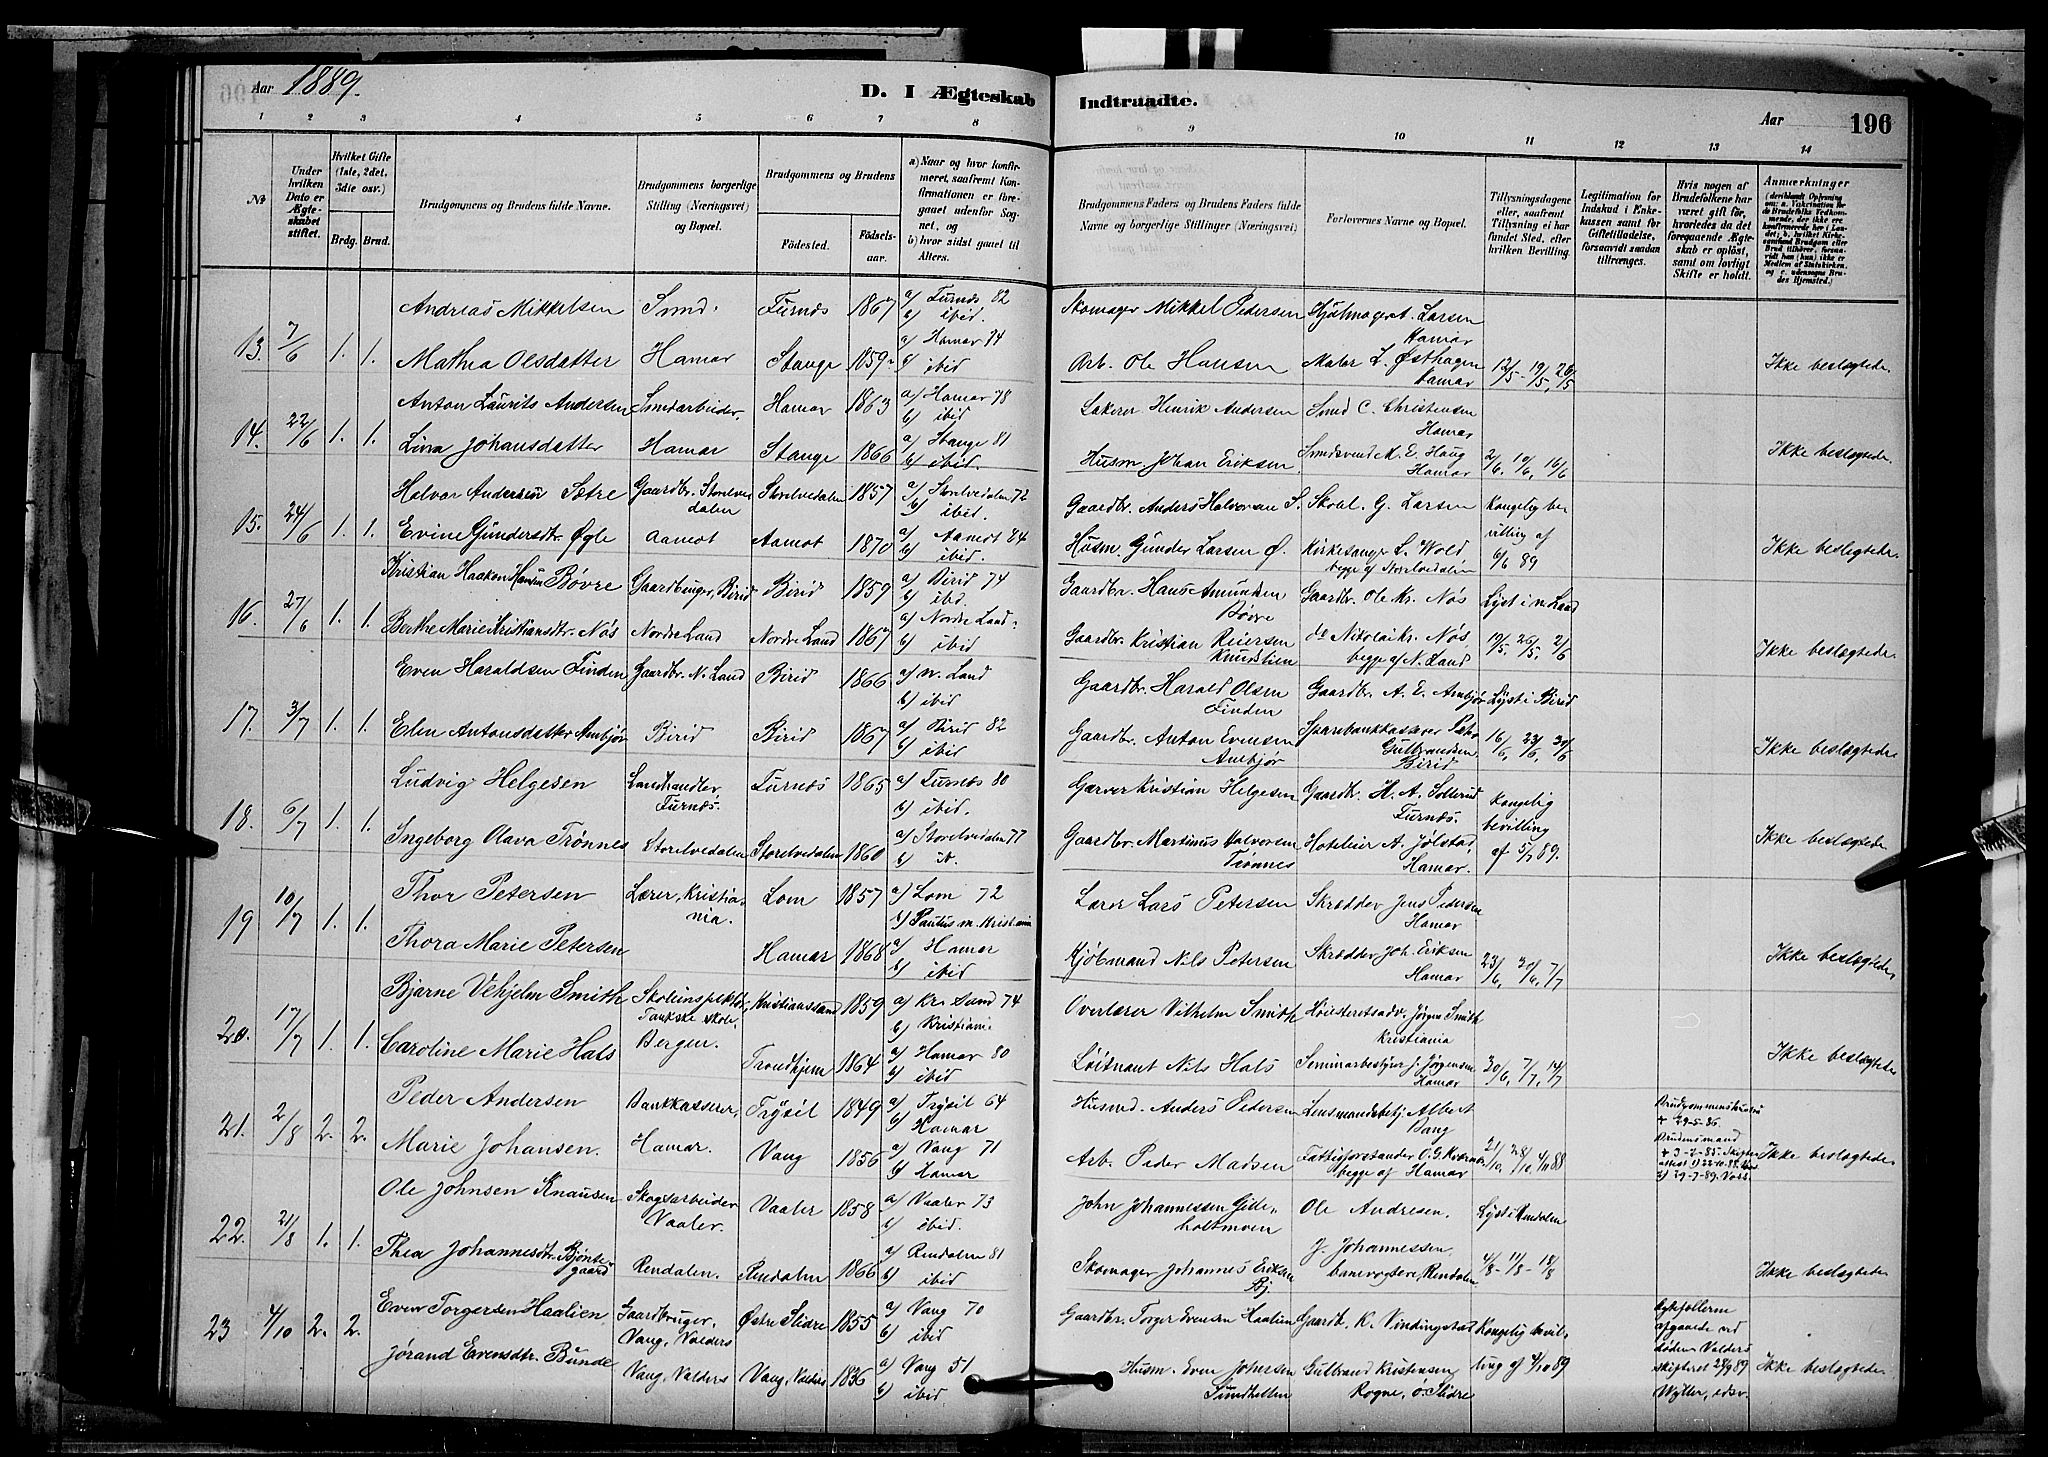 Aar 1889.
D. I Ægteskab Indtraadte.
Aar 196
1 2 3 4 5 6 7 8 9 10 11 12 13 14
No
Under hvilken Dato er Ægteskabet stiftet.
Hvilket Gifte (1ste, 2det, 3die osv.)
Brdg. Brud.
Brudgommens og Brudens fulde Navne.
Brudgommens borgerlige Stilling (Næringsvei) og Bopæl.
Brudgommens og Brudens
Fødested.
Fødselsaar.
a) Naar og hvor konfirmeret, saafremt Konfirmationen er foregaaet udenfor Sognet, og
b) hvor sidst gaaet til Alters.
Brudgommens Faders og Brudens Faders fulde Navne og borgerlige Stillinger (Næringsvei)
Forlovernes Navne og Bopæl.
Tillysningsdagene eller, saafremt Tillysning ei har fundet Sted, efter hvilken Bevilling.
Legitimation for Indskud i Enkekassen samt for Giftetilladelse, forsaavidt saadan tiltrænges.
Hvis nogen af Brudefolkene har været gift før, hvorledes da det foregaaende Ægteskab er opløst, samt om lovligt Skifte er holdt.
Anmærkninger
13. 7/6 1. 1. Andreas Mikkelsen Smed. Furnes 1867 a) Furnes 82 b) ibid. Skomager Mikkel Pedersen Hjulmager A. Larsen Hamar
Mathea Olsdatter Hamar Stange 1859 a) Hamar 74 b) ibid Arb. Ole Hansen Maler L. Østhagen Hamar 12/5 - 19/5, 26/5 Ikke beslægtede.
14. 22/6 1. 1. Anton Laurits Andersen Smedarbeider. Hamar 1863 a) Hamar 78 b) ibid Lakerer Henrik Andersen Smed C. Christensen Hamar
Lina Johansdatter Hamar Stange 1866 a) Stange 81 b) ibid. Husm. Johan Eriksen. Smedsvend M. E. Haug Hamar 2/6, 10/6, 16/6 Ikke beslægtede.
15. 24/6 1. 1. Halvor Andersen Sætre Gaardbr. Storelvedalen Storelvedalen 1857 a) Storelvedalen 72 b) ibid. Gaardbr. Anders Halvorsen S. Skohl. G. Larsen Kongelig bevilling af 6/6 89
Evine Gundersdtr. Øgle Aamot Aamot 1870 a) Aamot 84 b) ibid. Husm. Gunder Larsen Ø. Kirkesanger L. Wold begge af Storelvedalen Ikke beslegtede.
16. 27/6 1. 1. Kristian Haakon Hansen Bøvre Gaardbruger, Birid Birid 1859 a) Birid 74 b) ibd. Gaardbr. Hans Amundsen Bøvre Gaardbr. Ole Kr. Nøs Lyst i N. Land
Berthe Marie Kristiansdtr. Nøs Nordre Land Nordre Land 1867 a) Nordre Land b) ibid Gaardbr. Kristian Reiersen Knudstien do Nikolai Kr. Nøs begge af N. Land 19/5, 26/5, 2/6 Ikke beslægtede.
17. 3/7 1. 1. Even Haraldsen Finden Gaardbr. N. Land Birid 1866 a) N. Land b) ibid Gaardbr. Harald Olsen Finden Gaardbr. A. E. Ambjør Lyst i Birid
Elen Antonsdatter Ambjør Birid Birid 1867 a) Birid 82 b) ibid Gaardbr. Anton Evensen Ambjør Sparebankkasserer Gulbrandsen Birid 16/6, 23/6, 30/6 Ikke beslægtede.
18. 6/7 1. 1. Ludvig Helgesen Landhandler Furnes. Furnes 1865 a) Furnes 80 b) ibid. Garver Kristian Helgesen Gaardbr. H. A. Sollerud Furnes. Kongelig bevilling af 5/7 89.
Ingeborg Olava Trønnes Storelvedalen Storelvedalen 1860 a) Storelvedalen 77 Gaardbr. Martinus Halvorsen Trønnes Hoteleier A. Jølstad, Hamar. Ikke beslægtede
19 10/7 1. 1. Thor Petersen Lærer, Kristiania. Lom 1857 a) Lom 72 b) Paulus m. Kristiania Lærer Lars Petersen Skrædder Jens Pedersen Hamar
Thora Marie Petersen Hamar 1868 a) Hamar b) ibid Kjøbmand Nils Petersen Skrædder Joh. Eriksen Hamar 23/6, 30/6, 7/7 Ikke beslægtede
20. 17/7 1. 1. Bjarne Vilhjelm Smith Skoleinspektør, Tankske skole, Kristianssund 1859 a) Kr. Sund 74 b) Kristiania Overlærer Vilhelm Smith Høiesteretsadv. Jørgen Smith Kristiania
Caroline Marie Hals Bergen. Trondhjem 1864 a) Hamar 80 b) ibid Løitnant Nils Hals Seminarbestyrer J. Jørgensen Hamar 30/6, 7/7, 14/7 Ikke beslægtede
21. 2/8 2. 2. Peder Andersen Bankkasserer, Trysil 1849 a) Trysil 64 b) Hamar Husmd. Anders Pedersen Lensmandsbetj. Albert Bang
Marie Johansen. Hamar. Vang 1856 a) Vang 71 b) Hamar Arb. Peder Madsen Fattigforstander O. G. begge af Hamar 21/10, 28/10, 4/11 88 Brudgommens + 29-5-86. Brudens mand + 3-2-85. Ikke beslægtede
22. 21/8 1. 1. Ole Johnsen Knausen Skogsarbeider Vaaler. Vaaler 1858 a) Vaaler 73 b) ibid. John Johannessen Gideholtmoen Ole Andresen. Lyst i Rendalen
Thea Johannesdtr. Bjøntegaard Rendalen. Rendalen 1866 a) Rendalen 81 b) ibid Skomager Johannes Eriksen Bj. J. Johannessen, banevogtere, Rendalen 4/8 - 11/8 - 18/8 Ikke beslægtede
23 4/10 2. 2. Even Torgersen Haalien, Gaardbruger, Vang, Valders Østre Slidre 1855 a) Vang 70 b) ibid Gaardbr. Torger Evensen Haalien Gaardbr. K. Vindingstad Kongelig bevilling af 1/10 89 afgaaede ved Døden Valders skifteret 27/9 89 Wyller, edsv.
Jørand Evensdtr. Bunde Vang, Valders Vang, Valders 1836 a) Vang 51 b) ibid Husm. Even Johersen Sundhellen Gulbrand Kristensen Rogne, ø. Slidre Ikke beslægtede